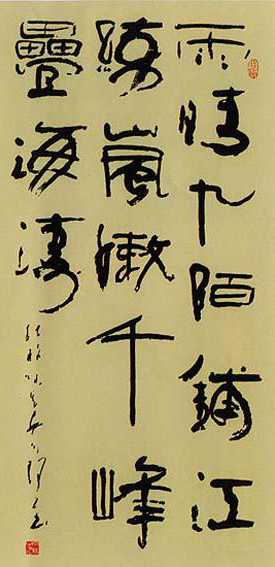 雨晴九陌鋪江
練嵐嫩千峰
疊海濤